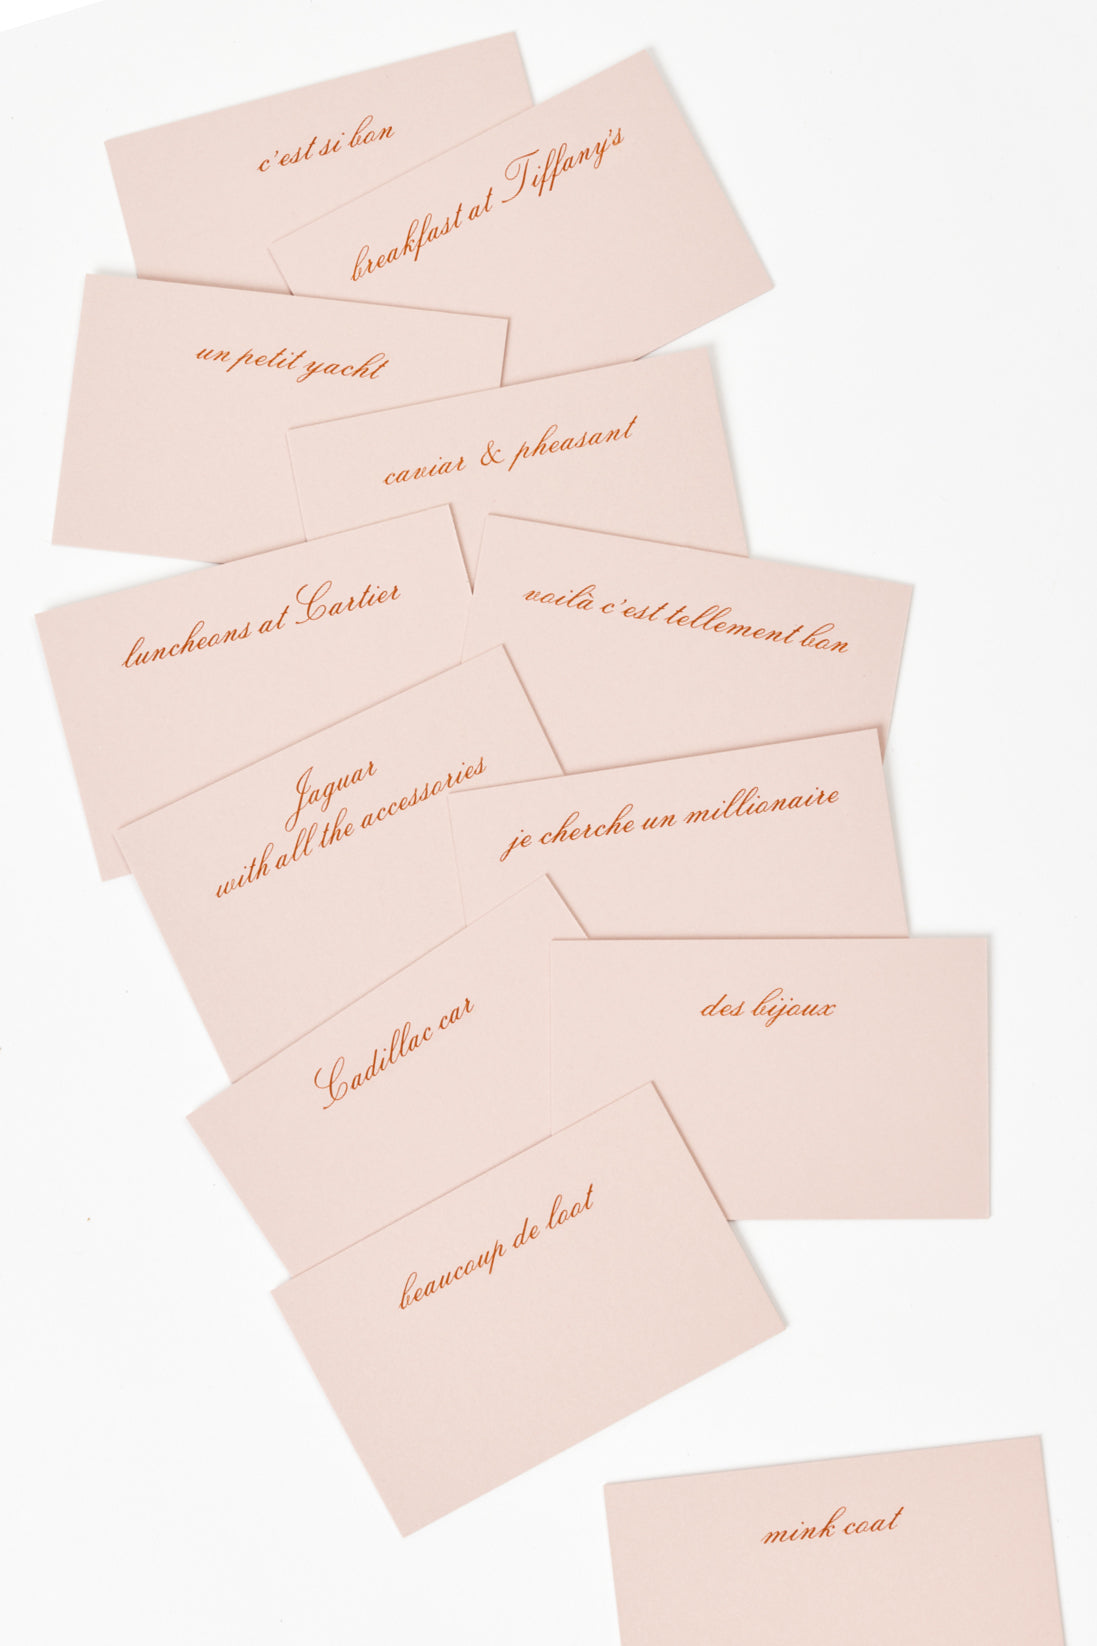 c'est si bon
breakfast at Tiffany's
un petit yacht
caviar & pheasant
luncheons at Cartier
voilà c'est tellement bon
Jaguar
with all the accessories
je cherche un millionaire
Cadillac car
des bijoux
beaucoup de loot
mink coat